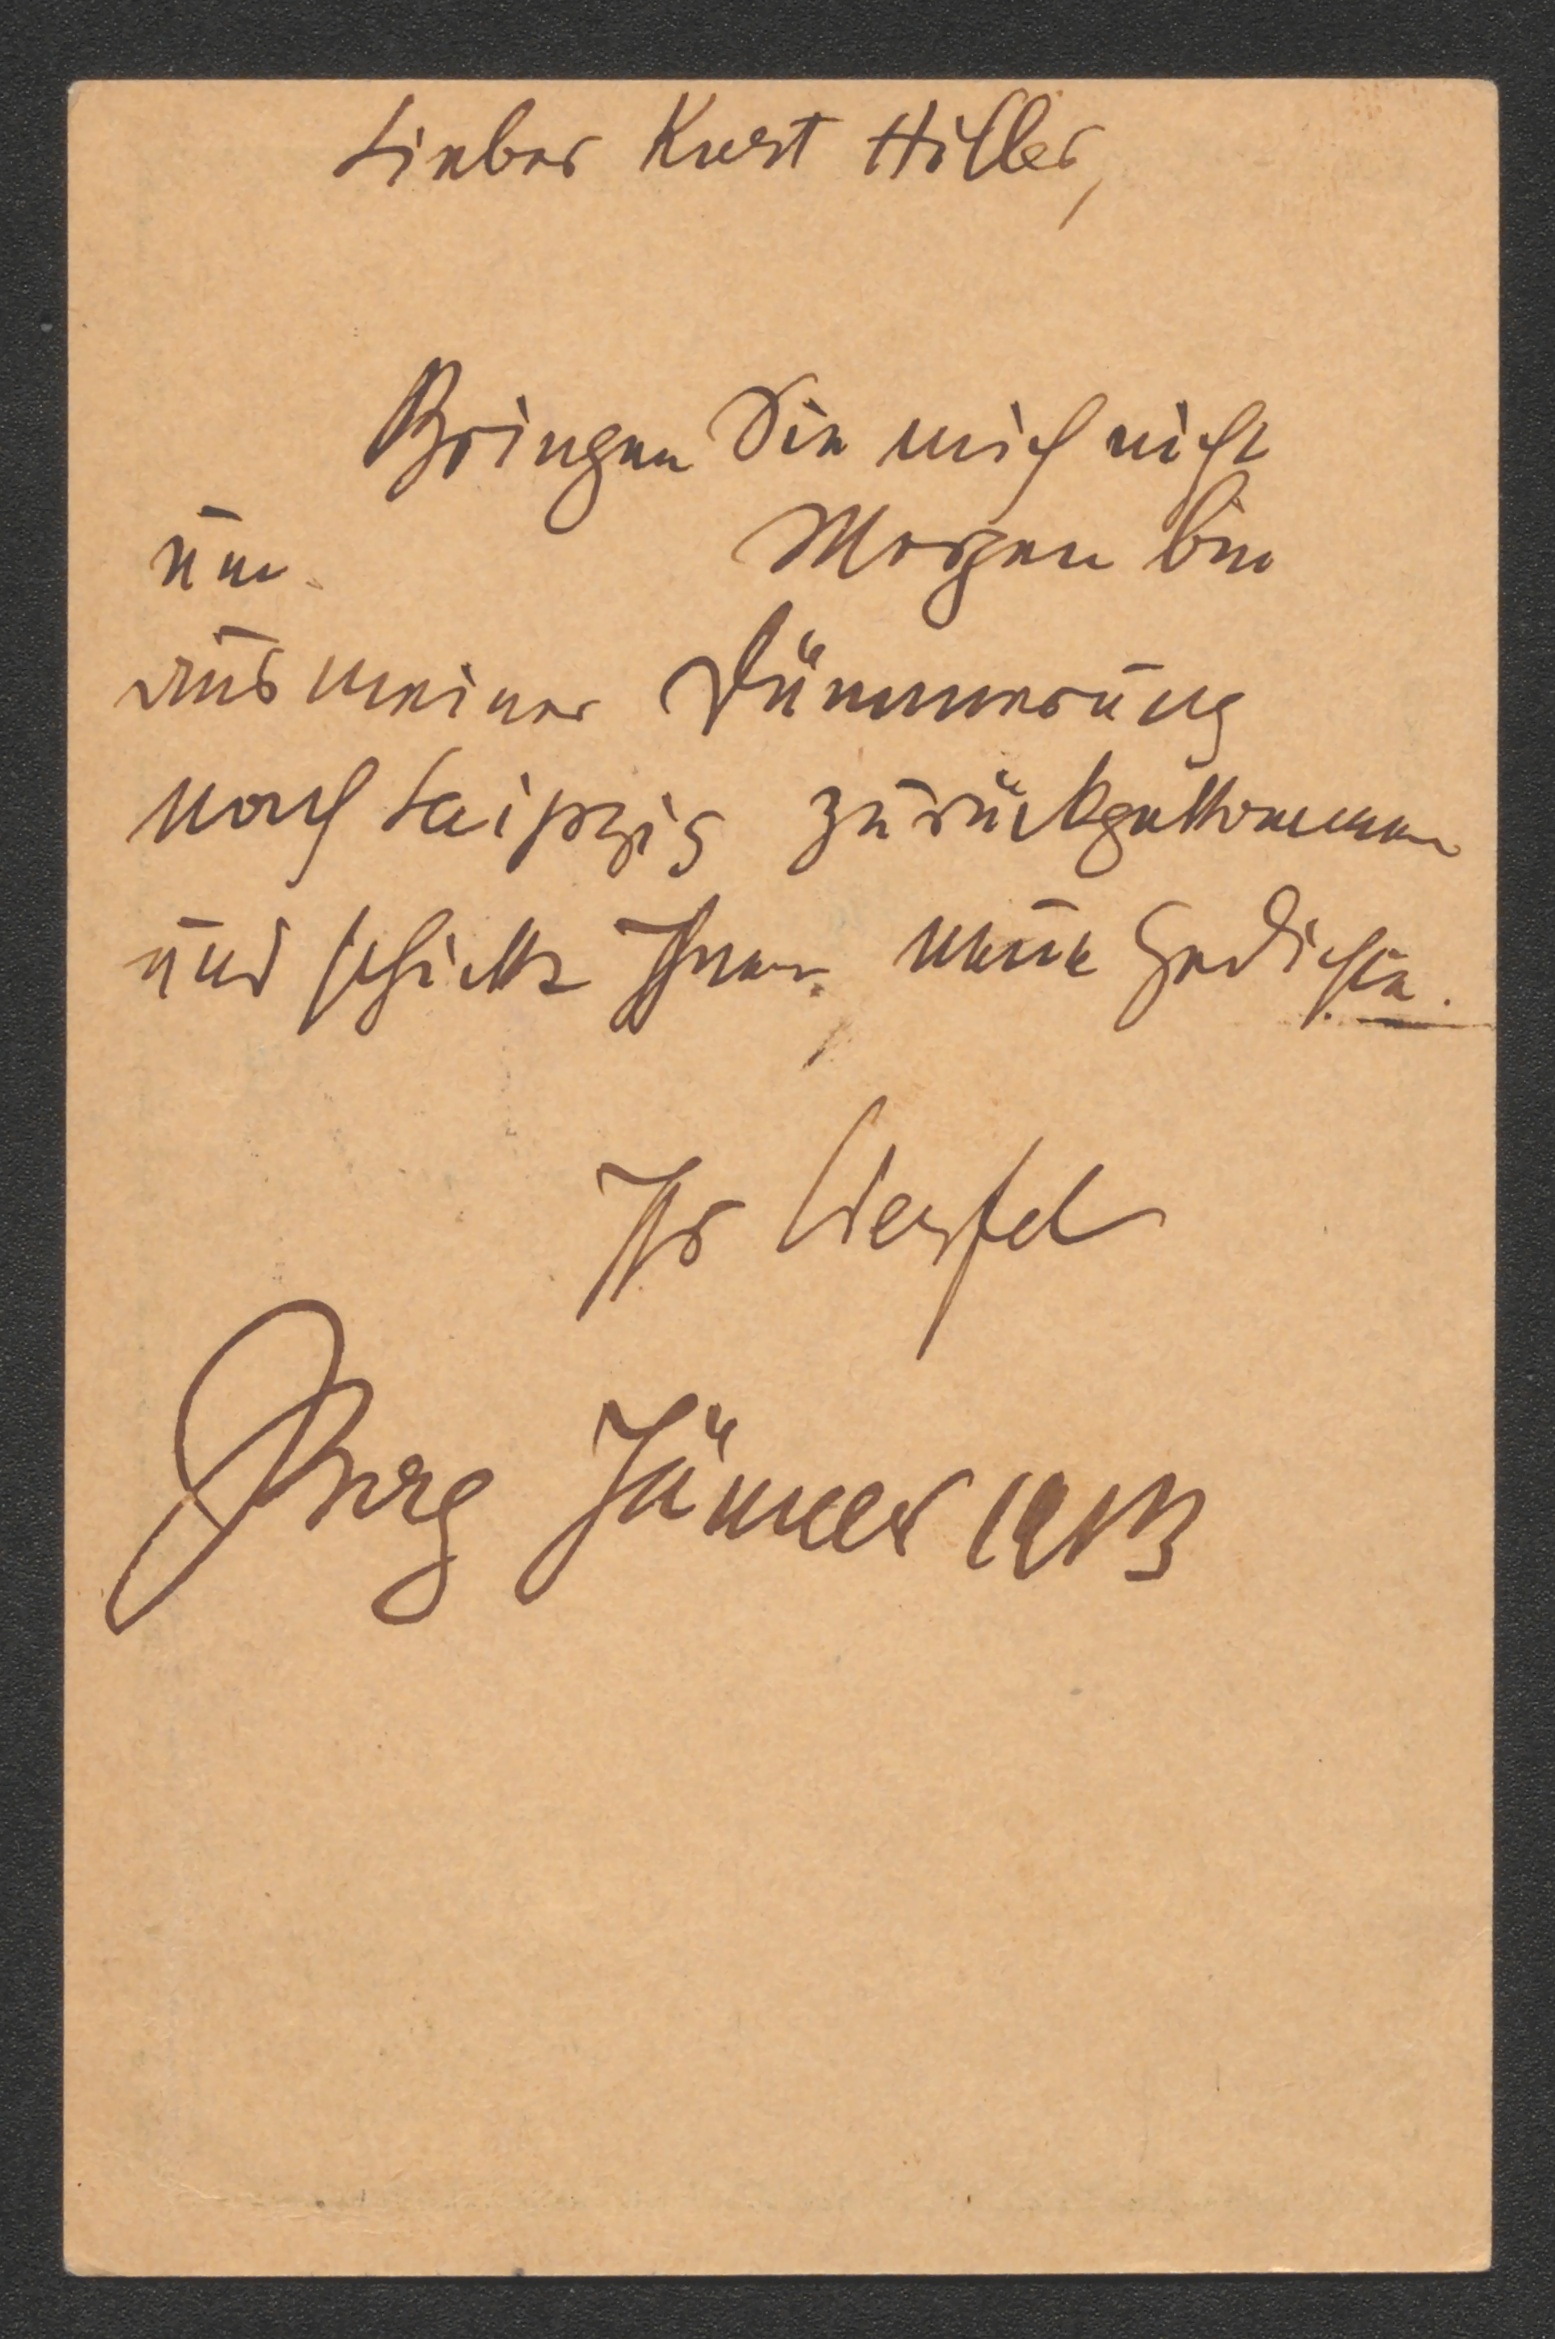 Lieber Kurt Hiller,
Bringen Sie mich nicht
um. Morgen bin
aus meiner Dämmerung
nach Leipzig zurückgekommen
und schicke Ihnen, neue Gedichte.
Ihr Werfel
Prag Jänner 1913